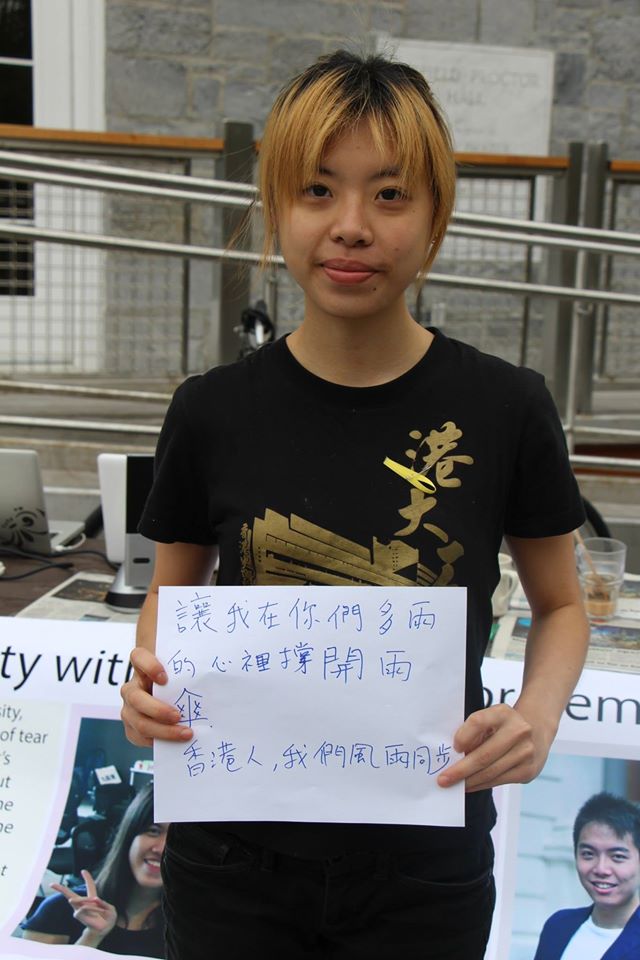 FIELD PROCTOR
HALL
港
大
讓我在你們多雨
的心裡撐開雨
傘.
香港人,我們風雨同步
ty with
em
sity,
of tear
r's
out
he
he
t